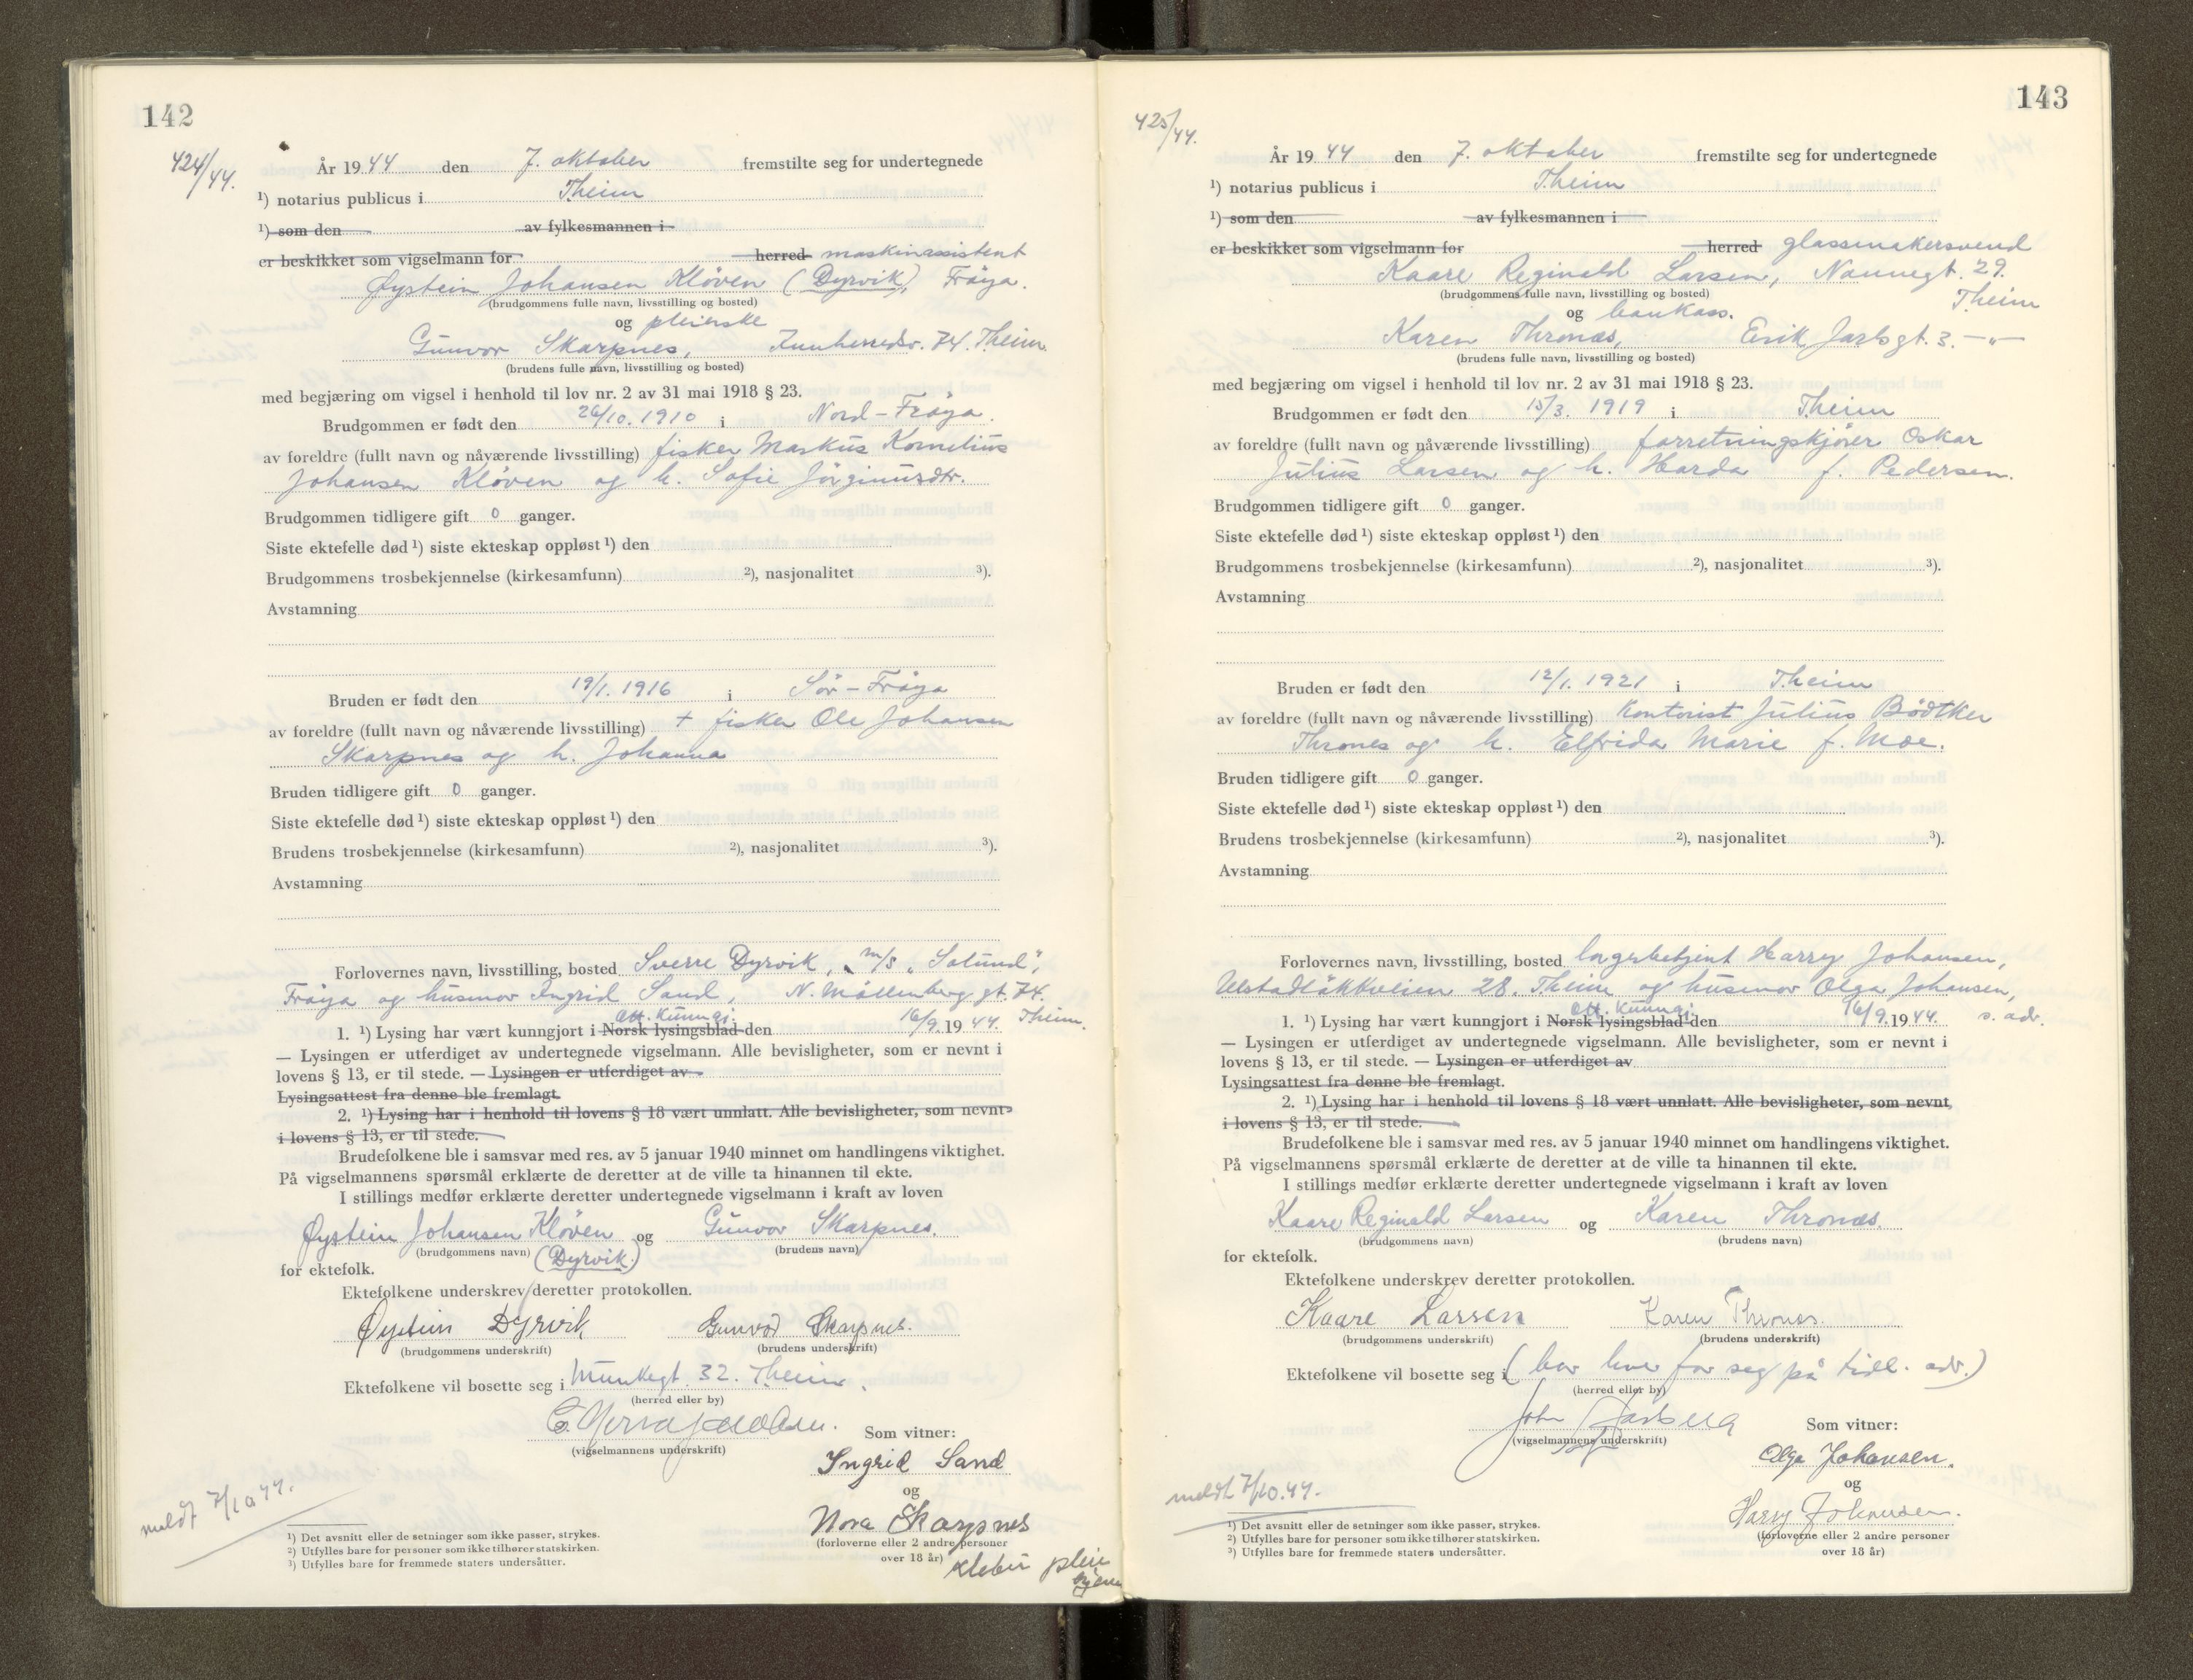 142
424/44.
År 1944 den 7. oktober fremstilte seg for undertegnede
¹) notarius publicus i T.heim
¹) som den av fylkesmannen i
er beskikket som vigselmann for herred maskinassistent
Øystein Johansen Kløven (Dyrvik), Frøya.
(brudgommens fulle navn, livsstilling og bosted)
og pleierske
Gunvor Skarpnes, Innherredsv. 74. T.heim
(brudens fulle navn, livsstilling og bosted)
med begjæring om vigsel i henhold til lov nr. 2 av 31 mai 1918 § 23.
Brudgommen er født den 26/10. 1910 i Nord-Frøya.
av foreldre (fullt navn og nåværende livsstilling) fisker Markus Kornelius
Johansen Kløven og h. Sofie Jørginusdtr.
Brudgommen tidligere gift 0 ganger.
Siste ektefelle død ¹) siste ekteskap oppløst ¹) den
Brudgommens trosbekjennelse (kirkesamfunn) ²), nasjonalitet ³).
Avstamning
Bruden er født den 19/1. 1916 i Sør-Frøya
av foreldre (fullt navn og nåværende livsstilling) + fisker Ole Johansen
Skarpnes og h. Johanna
Bruden tidligere gift 0 ganger.
Siste ektefelle død ¹) siste ekteskap oppløst ¹) den
Brudens trosbekjennelse (kirkesamfunn) ²), nasjonalitet ³).
Avstamning
Forlovernes navn, livsstilling, bosted Sverre Dyrvik, m/s „Solund",
Frøya og husmor Ingrid Sand, N. Møllenberg gt. 74.
Off. kunngj. T.heim.
1. ¹) Lysing har vært kunngjort i Norsk lysingsblad den 16/9. 1944.
— Lysingen er utferdiget av undertegnede vigselmann. Alle bevisligheter, som er nevnt i
lovens § 13, er til stede. — Lysingen er utferdiget av
Lysingsattest fra denne ble fremlagt.
2. ¹) Lysing har i henhold til lovens § 18 vært unnlatt. Alle bevisligheter, som nevnt
i lovens § 13, er til stede.
Brudefolkene ble i samsvar med res. av 5 januar 1940 minnet om handlingens viktighet.
På vigselmannens spørsmål erklærte de deretter at de ville ta hinannen til ekte.
I stillings medfør erklærte deretter undertegnede vigselmann i kraft av loven
Øystein Johansen Kløven og Gunvor Skarpnes.
(brudgommens navn) (Dyrvik) (brudens navn)
for ektefolk.
Ektefolkene underskrev deretter protokollen.
Øystein Dyrvik Gunvor Skarpnes.
(brudgommens underskrift) (brudens underskrift)
Ektefolkene vil bosette seg i Munkegt. 32. T.heim.
(herred eller by)
(vigselmannens underskrift)
Som vitner:
Ingrid Sand
og
Nora Skarpnes
(forloverne eller 2 andre personer
over 18 år)
meldt 7/10 44.
¹) Det avsnitt eller de setninger som ikke passer, strykes.
²) Utfylles bare for personer som ikke tilhører statskirken.
³) Utfylles bare for fremmede staters undersåtter.
143
425/44.
År 1944 den 7. oktober fremstilte seg for undertegnede
¹) notarius publicus i T.heim
¹) som den av fylkesmannen i
er beskikket som vigselmann for herred glassmakersvend
Kaare Reginald Larsen, Nannegt. 29.
(brudgommens fulle navn, livsstilling og bosted) T.heim
og bankass.
Karen Thronæs, Erik Jarlsgt. 3. —"—
(brudens fulle navn, livsstilling og bosted)
med begjæring om vigsel i henhold til lov nr. 2 av 31 mai 1918 § 23.
Brudgommen er født den 15/3. 1919 i T.heim
av foreldre (fullt navn og nåværende livsstilling) forretningskjører Oskar
Julius Larsen og h. Harda f. Pedersen.
Brudgommen tidligere gift 0 ganger.
Siste ektefelle død ¹) siste ekteskap oppløst ¹) den
Brudgommens trosbekjennelse (kirkesamfunn) ²), nasjonalitet ³).
Avstamning
Bruden er født den 12/1. 1921 i T.heim
av foreldre (fullt navn og nåværende livsstilling) kontorist Julius Bødtker
Thrones og h. Elfrida Marie f. Moe.
Bruden tidligere gift 0 ganger.
Siste ektefelle død ¹) siste ekteskap oppløst ¹) den
Brudens trosbekjennelse (kirkesamfunn) ²), nasjonalitet ³).
Avstamning
Forlovernes navn, livsstilling, bosted lagerbetjent Harry Johansen,
28. T.heim og husmor Olga Johansen,
Off. kunngj. s. adr.
1. ¹) Lysing har vært kunngjort i Norsk lysingsblad den 16/9. 1944.
— Lysingen er utferdiget av undertegnede vigselmann. Alle bevisligheter, som er nevnt i
lovens § 13, er til stede. — Lysingen er utferdiget av
Lysingsattest fra denne ble fremlagt.
2. ¹) Lysing har i henhold til lovens § 18 vært unnlatt. Alle bevisligheter, som nevnt
i lovens § 13, er til stede.
Brudefolkene ble i samsvar med res. av 5 januar 1940 minnet om handlingens viktighet.
På vigselmannens spørsmål erklærte de deretter at de ville ta hinannen til ekte.
I stillings medfør erklærte deretter undertegnede vigselmann i kraft av loven
Kaare Reginald Larsen og Karen Thronæs.
(brudgommens navn) (brudens navn)
for ektefolk.
Ektefolkene underskrev deretter protokollen.
Kaare Larsen Karen Thrones.
(brudgommens underskrift) (brudens underskrift)
Ektefolkene vil bosette seg i (bor hver for seg på tidl. adr.)
(herred eller by)
John
(vigselmannens underskrift)
Som vitner:
Olga Johansen.
og
Harry Johansen.
(forloverne eller 2 andre personer
over 18 år)
meldt 7/10.44.
¹) Det avsnitt eller de setninger som ikke passer, strykes.
²) Utfylles bare for personer som ikke tilhører statskirken.
³) Utfylles bare for fremmede staters undersåtter.